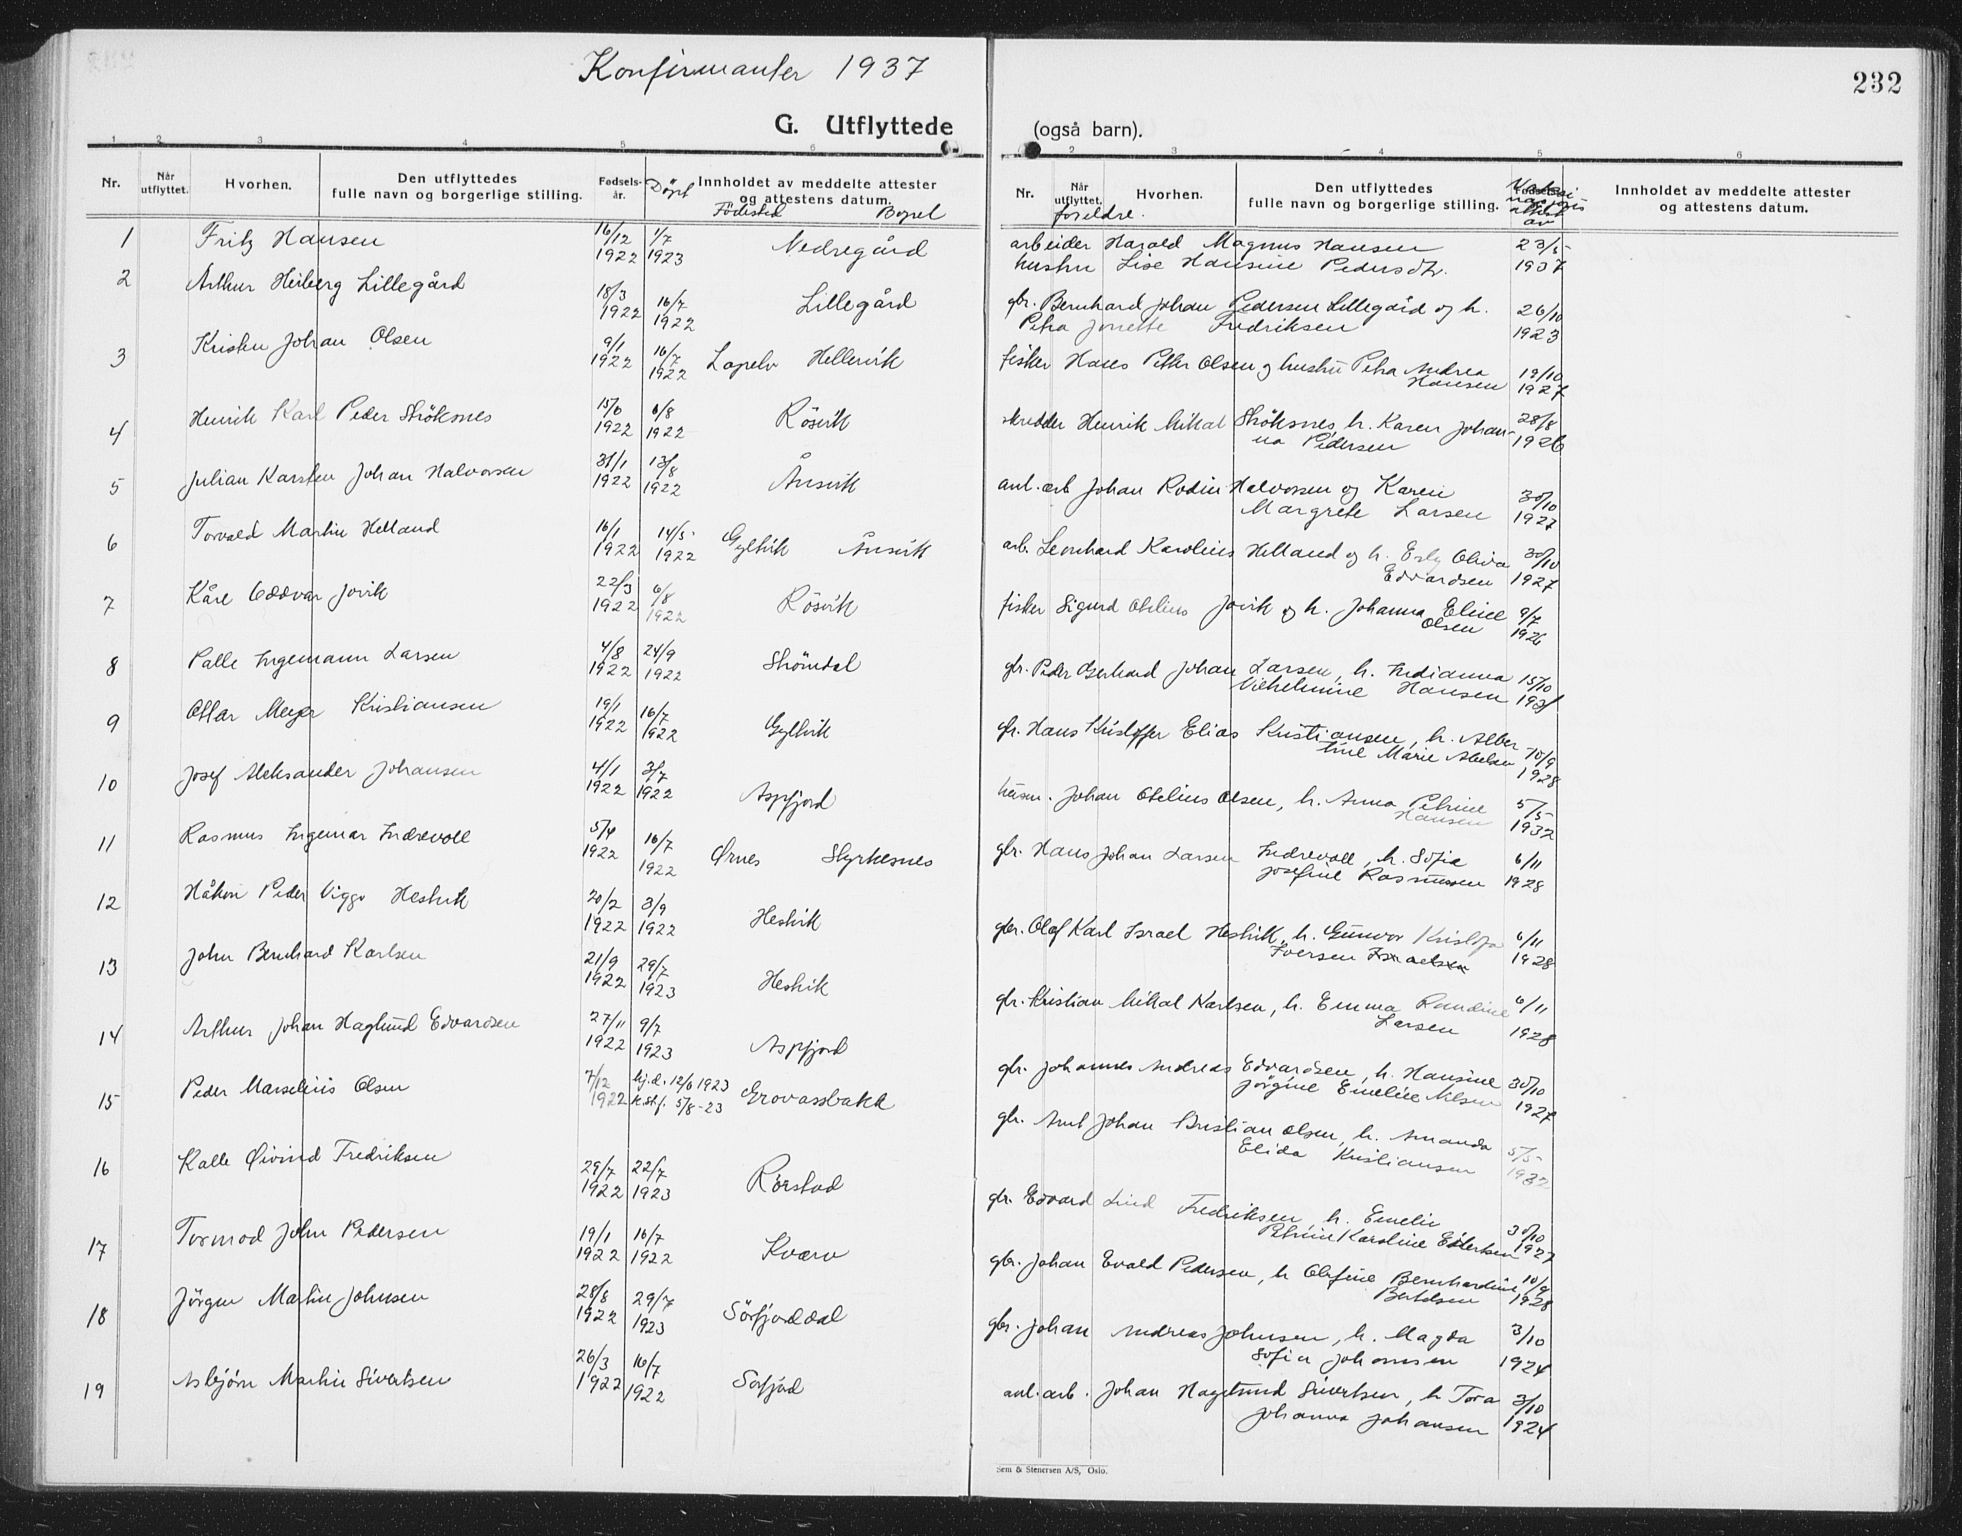 Konfirmanter 1937
232
G. Utflyttede
(også barn).
1 2 3 4 5 6
2 3 4 5 6
Nr.
Når utflyttet.
Hvorhen.
Den utflyttedes
fulle navn og borgerlige stilling.
Fødsels-
år.
Döpt
Innholdet av meddelte attester
og attestens datum.
Födested Bopel
Nr.
Når utflyttet.
Hvorhen.
foreldre.
Den utflyttedes
fulle navn og borgerlige stilling.
Innholdet av meddelte attester
og attestens datum.
1 Fritz Hansen 16/12 1922 1/7 1923 Nedregård
arbeider Harald Magnus Hansen
hustru Lise Hansine Pedersdtr. 23/5 1937
2 Arthur Heiberg Lillegård 18/3 1922 16/7 1922 Lillegård
gbr. Bernhard Johan Pedersen Lillegård og h.
Petra Jonette Fredriksen 26/10 1923
3 Kristen Johan Olsen 9/1 1922 16/7 1922 Lapelv Hellervik
fisker Hans Petter Olsen og hustru Petra Andrea
Hansen 19/10 1927
4 Henrik Karl Peder Ströksnes 15/6 1922 6/8 1922 Rösvik
skredder Henrik Mikal Ströksnes, h. Karen Johan-
na Pedersen 28/8 1926
5 Julian Karsten Johan Halvorsen 31/1 1922 13/8 1922 Ånsvik
anl. arb Johan Rodin Halvorsen og Karen
Margrete Larsen 30/10 1927
6 Torvald Martin Helland 16/1 1922 14/5 1922 Gyltvik Ånsvik
arb. Leonhard Karolius Helland og h. Esly Oliva
Edvardsen 30/10 1927
7 Kåre Oddvar Jovik 22/3 1922 6/8 1922 Rösvik
fisker Sigurd Otelius Jovik og h. Johanna Eline
Olsen 9/7 1926
8 Palle Ingemann Larsen 4/8 1922 24/9 1922 Ströndal
gbr. Peder Gerhard Johan Larsen, h. Indianna
Vilhelmine Hansen 15/10 1931
9 Ottar Meyer Kristiansen 19/1 1922 16/7 1922 Gyltvik
gbr. Hans Kristoffer Elias Kristiansen, h. Alber
tine Marie Abelsen 10/9 1928
10 Josef Aleksander Johansen 4/1 1922 3/7 1922 Aspfjord
husm. Johan Otelius Olsen, h. Anna Petrine
Hansen 5/5 1932
11 Rasmus Ingemar Indrevoll 5/4 1922 16/7 1922 Ørnes Styrkesnes
gbr. Hans Johan Larsen Indrevoll, h. Sofie
Josefine Rasmussen 6/11 1928
12 Håkon Peder Viggo Hestvik 20/2 1922 3/9 1922 Hestvik
gbr. Olaf Karl Israel Hestvik, h. Gunvor Kristofa
Iversen 6/11 1928
13 John Bernhard Karlsen 21/9 1922 29/7 1923 Hestvik
gbr. Kristian Mikal Karlsen, h. Emma Randine
Larsen 6/11 1928
14 Arthur Johan Haglund Edvardsen 27/11 1922 9/7 1923 Aspfjord
gbr. Johannes Andreas Edvardsen, h. Hansine
Jörgine Emelie Nilsen 30/10 1927
15 Peder Marselius Olsen 7/12 1922 hj.d. 12/6 1923
k.st.f. 5/8-23 Grovassbakk
gbr. Arnt Johan Kristian Olsen, h. Amanda
Elida Kristiansen 5/5 1932
16 Kalle Øivind Fredriksen 29/7 1922 22/7 1923 Rörstad
gbr. Edvard Lind Fredriksen, h. Emelie
Petrine Karoline Edvertsen 30/10 1927
17 Tormod John Pedersen 19/1 1922 16/7 1922 Kvarv
gbr. Johan Evald Pedersen, h Olefine Bernhardine
Bertelsen 10/9 1928
18 Jörgen Martin Johnsen 28/8 1922 29/7 1923 Sörfjorddal
gbr. Johan Andreas Johnsen, h. Magda
Sofia Johannesen 3/10 1924
19 Asbjörn Martin Sivertsen 26/3 1922 16/7 1922 Sörfjord
anl. arb. Johan Hagelund Sivertsen, h Tora
Johanna Johansen 3/10 1924
Sem & Stenersen A/S, Oslo.